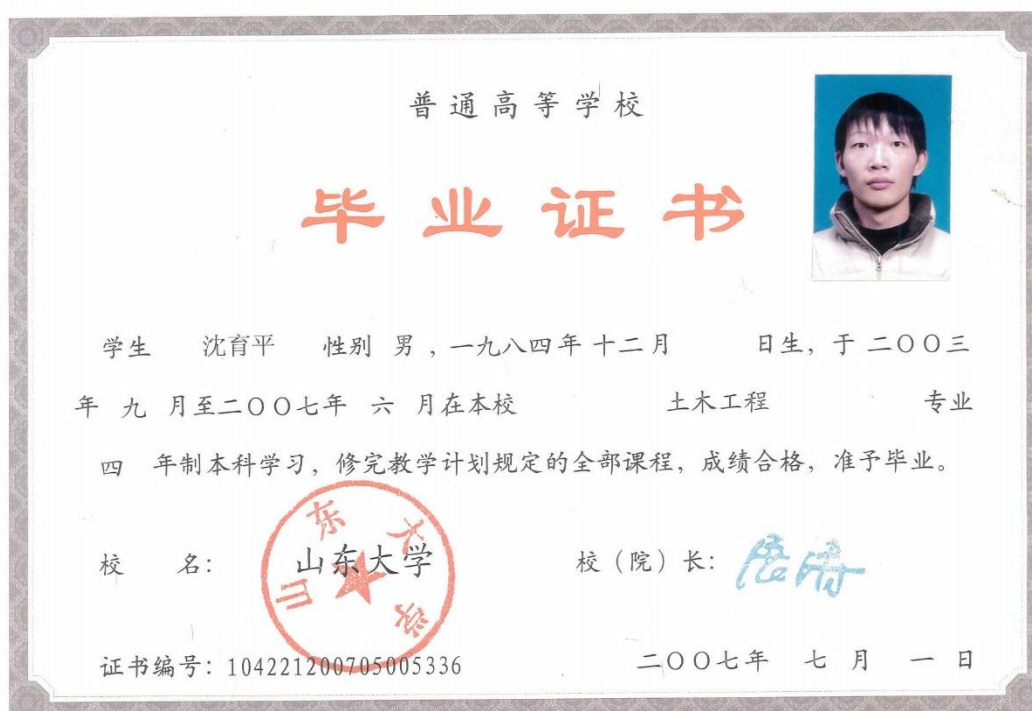 普通高等学校
毕业证书
学生 沈育平 性别 男，一九八四年十二月 日生，于二〇〇三
年 九 月至二〇〇七年 六 月在本校 土木工程 专业
四 年制本科学习，修完教学计划规定的全部课程，成绩合格，准予毕业。
校 名： 山东大学 校（院）长：
山东大学
证书编号：104221200705005336 二〇〇七年 七 月 一 日